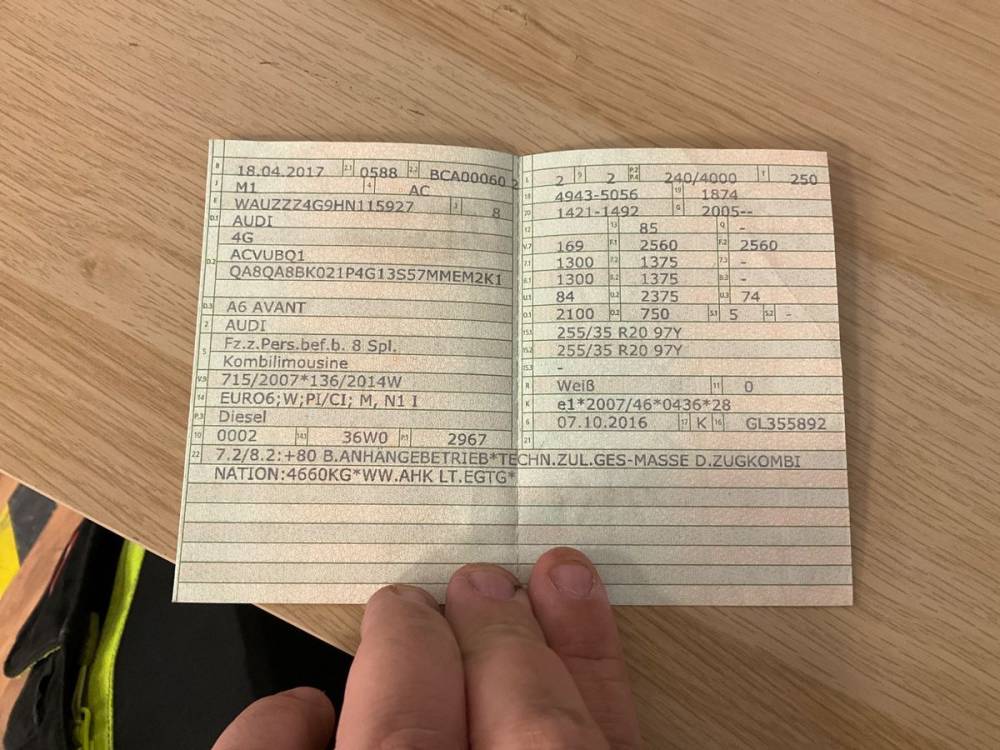 B 18.04.2017 2.1 0588 2.2 BCA00060 2
J M1 4 AC
E WAUZZZ4G9HN115927 3 8
D.1 AUDI
4G
D.2 ACVUBQ1
QA8QA8BK021P4G13S57MMEM2K1
D.3 A6 AVANT
2 AUDI
5 Fz.z.Pers.bef.b. 8 Spl.
Kombilimousine
V.9 715/2007*136/2014W
14 EURO6;W;PI/CI; M, N1 I
P.3 Diesel
10 0002 14.1 36W0 P.1 2967
L 2 9 2 P.2 P.4 240/4000 T 250
18 4943-5056 19 1874
20 1421-1492 G 2005--
12 13 85 Q -
V.7 169 F.1 2560 F.2 2560
7.1 1300 7.2 1375 7.3 -
8.1 1300 8.2 1375 8.3 -
U.1 84 U.2 2375 U.3 74
O.1 2100 O.2 750 S.1 5 S.2 -
15.1 255/35 R20 97Y
15.2 255/35 R20 97Y
15.3 -
R Weiß 11 0
K e1*2007/46*0436*28
6 07.10.2016 17 K 16 GL355892
21
22 7.2/8.2:+80 B.ANHÄNGEBETRIEB*TECHN.ZUL.GES-MASSE D.ZUGKOMBI
NATION:4660KG*WW.AHK LT.EGTG*